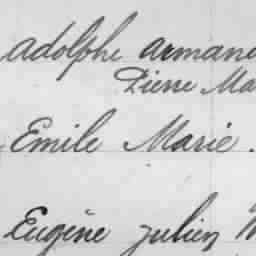 Adolphe Arman
Pierre Ma
Emile Marie.
Eugène Julien